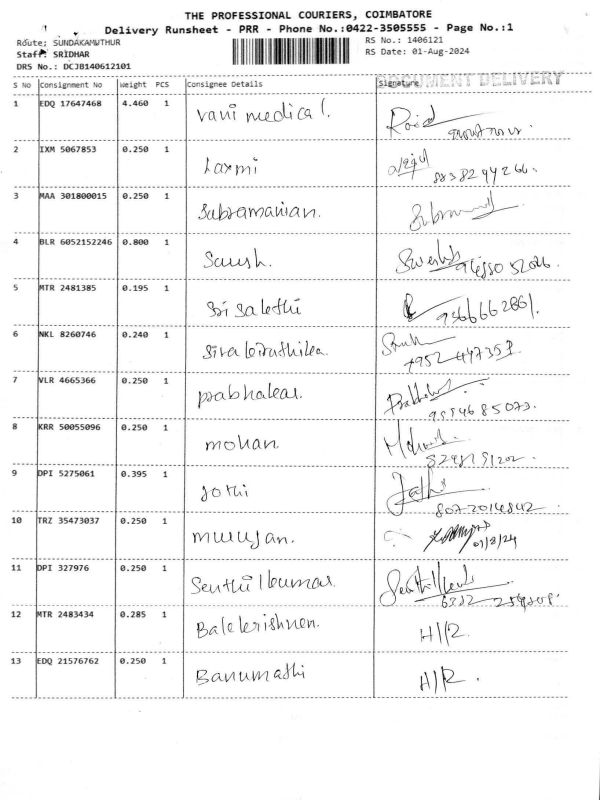 THE PROFESSIONAL COURIERS, COIMBATORE
Delivery Runsheet - PRR - Phone No.:0422-3505555 - Page No.:1
Route: SUNDAKAMUTHUR
RS No.: 1406121
Staff: SRIDHAR
RS Date: 01-Aug-2024
DRS No.: DCJB140612101
DOCUMENT DELIVERY
S No Consignment No Weight PCS Consignee Details Signature
1 EDQ 17647468 4.460 1 vani medical.
2 IXM 5067853 0.250 1 Laxmi
8838294266.
3 MAA 301800015 0.250 1 Subramanian.
4 BLR 6052152246 0.800 1
5 MTR 2481385 0.195 1 Sri Sakthi
9566662861.
6 NKL 8260746 0.240 1
7952 447357
7 VLR 4665366 0.250 1 prabhakar
9994685073.
8 KRR 50055096 0.250 1 mohan
9 DPI 5275061 0.395 1 Jothi
8072014842
10 TRZ 35473037 0.250 1 murugan.
01/8/24
11 DPI 327976 0.250 1 Senthilkumar
6382
12 MTR 2483434 0.285 1 Balakrishnan. H/R.
13 EDQ 21576762 0.250 1 Banumathi H/R.